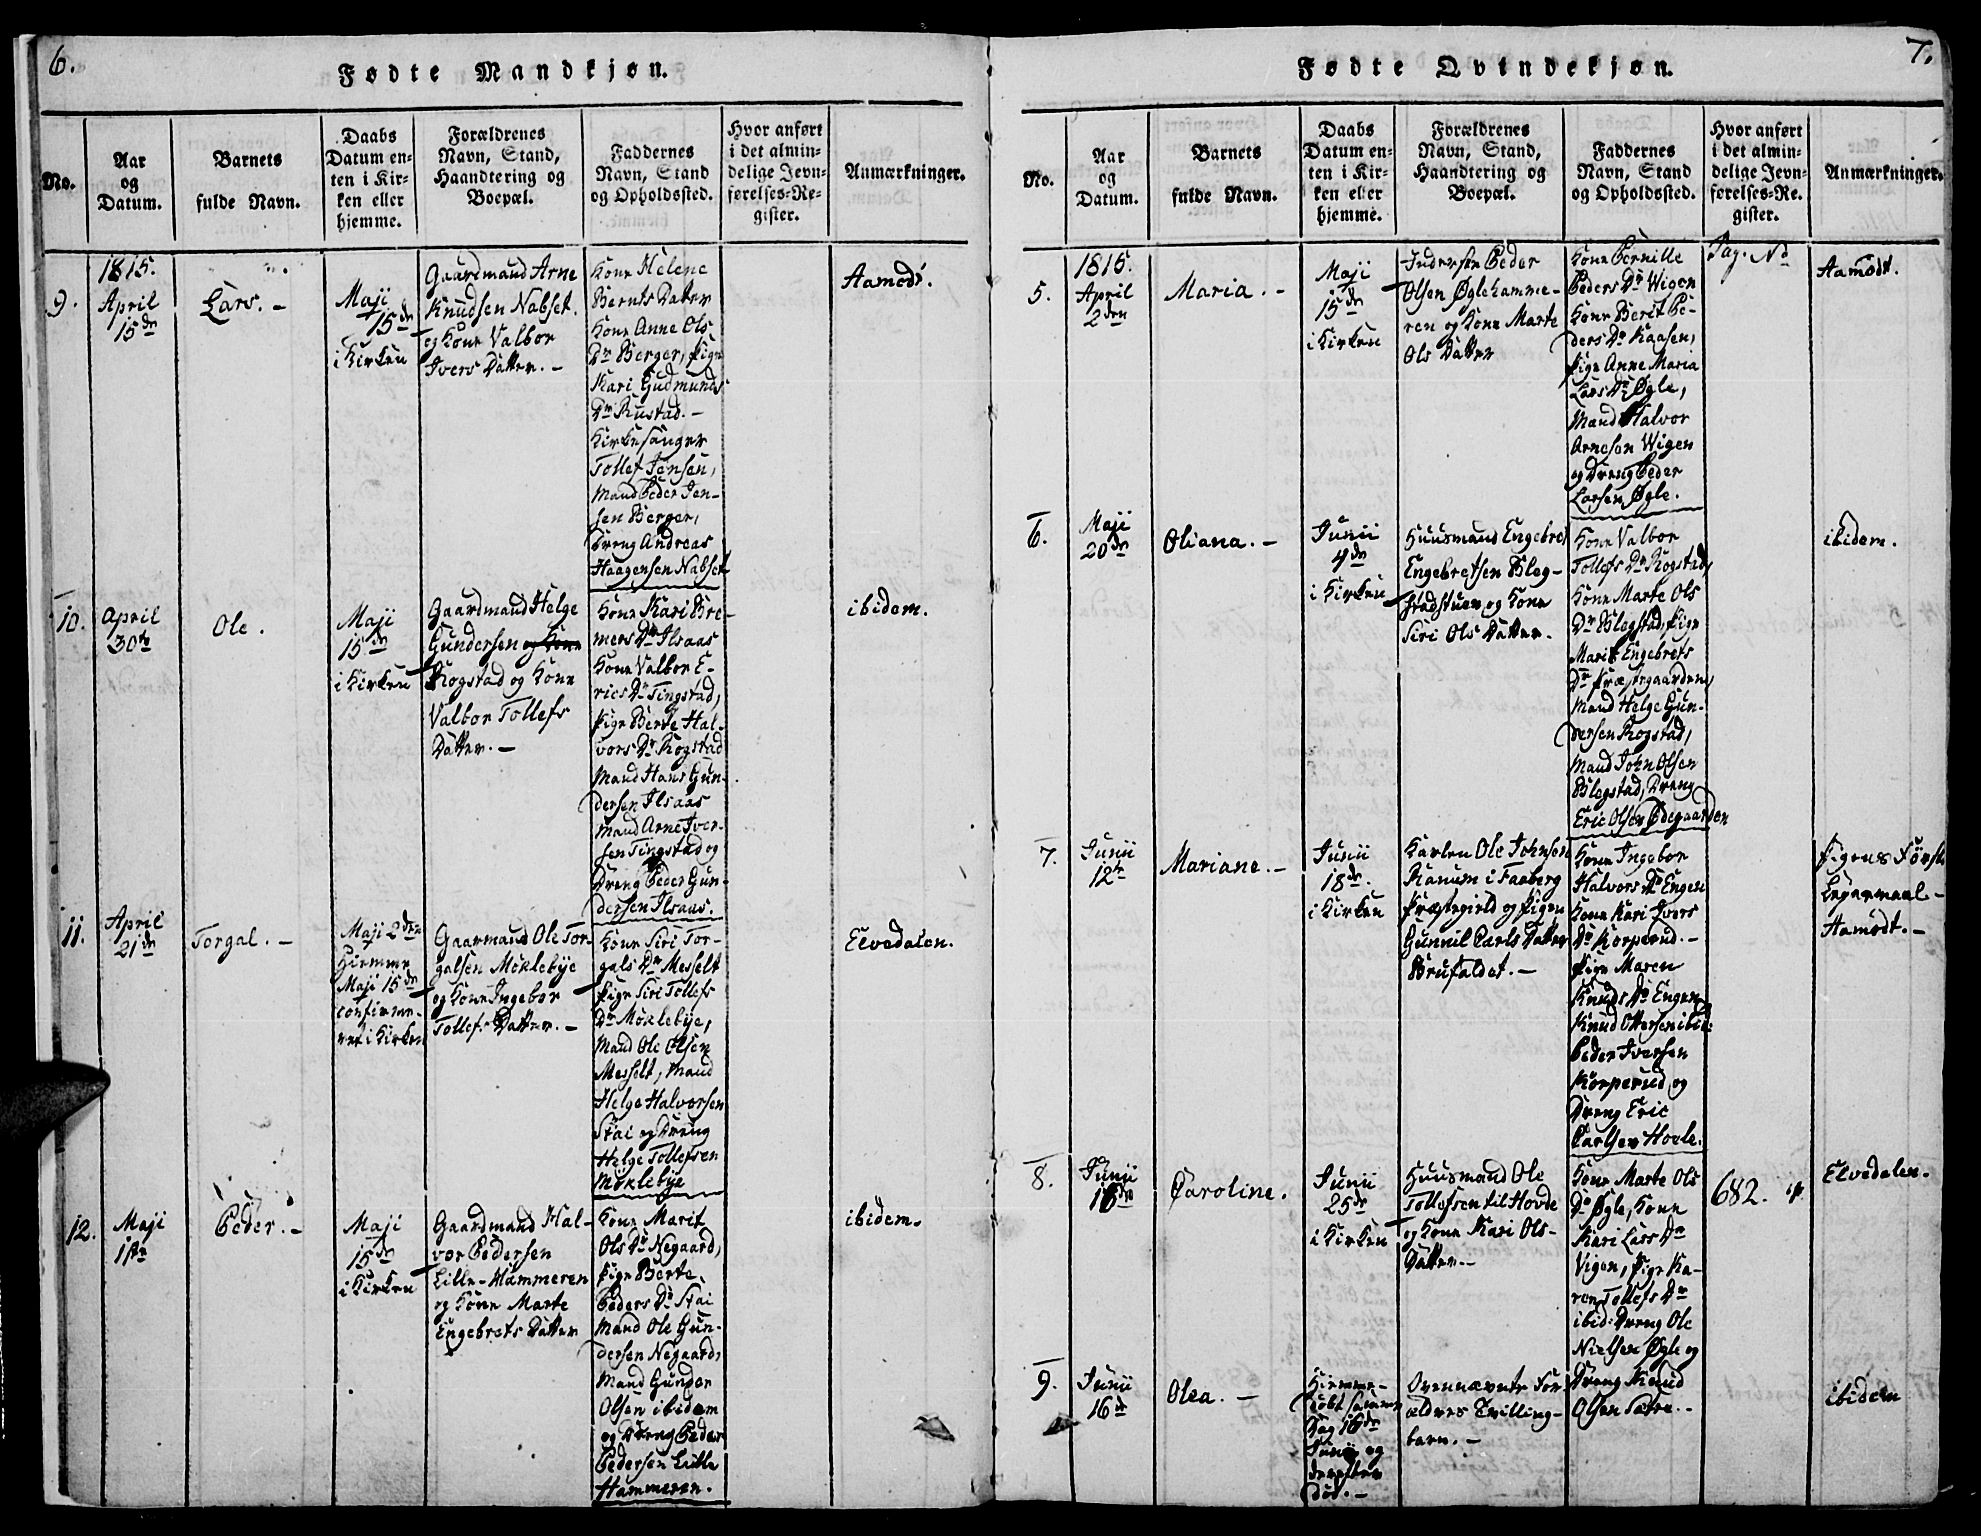 6.
Fødte Mandkjøn.
No.
Aar
og
Datum.
Barnets
fulde Navn.
Daabs
Datum en-
ten i Kir-
ken eller
hjemme.
Forældrenes
Navn, Stand,
Haandtering og
Boepæl.
Faddernes
Navn, Stand
og Opholdssted.
Hvor anført
i det almin-
delige Jevn-
førelses-Re-
gister.
Anmærkninger.
9.
1815.
April
15de
Lars. -
Maji
15de
i Kirken
Gaardmand Arne
Knudsen Nabset.
og Kone Valbor
Ivers Datter. -
Kone Helene
Bernts Datter
Kone Anne Ols
Dr Berger, Pige
Kari Gudmunds
Dr Rustad. -
Kirkesanger
Tollef Jensen,
Mand Peder Jen-
sen Berger,
Dreng Andreas
Haagensen Nabset
Aamodt.
10.
April
30te
Ole.
Maji
15de
i Kirken
Gaardmand Helge
Gundersen og Kone
Rogstad og Kone
Valbor Tollefs
Datter. -
Kone Kari Bre-
mers Dr Ilsaas
Kone Valbor E-
rics Dr Tingstad,
Pige Berte Hal-
vors Dr Rogstad
Mand Hans Gun-
dersen Ilsaas
Mand Arne Iver-
sen Tingstad og
Dreng Peder Gun-
dersen Ilsaas.
ibidem.
11.
April
21de
Torgal. -
Maji 2den
Hiemme
Maji 15de
confirme-
ret i Kirken
Gaarmand Ole Tor-
galsen Møklebye
og Kone Ingebor
Tollefs Datter. -
Kone Siri Tor-
gals Dr Messelt
Pige Siri Tollefs
Dr Møklebye,
Mand Ole Olsen
Messelt, Mand
Helge Halvorsen
Stai og Dreng
Helge Tollefsen
Møklebye
Elvedalen.
12.
Maji
1ste
Peder. -
Maji
15de
i Kirken
Gaardmand Hal-
vor Pedersen
Lille-Hammeren
og Kone Marte
Engebrets Datter
Kone Marit
Ols Dr Negaard,
Pige Berte
Peders Dr Stai
Mand Ole Gun-
dersen Negaard,
Mand Gunder
Olsen ibidem
og Dreng Peder
Pedersen Lille
Hammeren.
ibidem.
7.
Fødte Qvindekjøn.
No.
Aar
og
Datum.
Barnets
fulde Navn.
Daabs
Datum en-
ten i Kir-
ken eller
hjemme.
Forældrenes
Navn, Stand,
Haandtering og
Boepæl.
Faddernes
Navn, Stand
og Opholdssted.
Hvor anført
i det almin-
delige Jevn-
førelses-Re-
gister.
Anmærkninger.
5.
1815.
April
2den
Maria. -
Maji
15de
i Kirken
Inderste Peder
Olsen Øglehamme-
ren og Kone Marte
Ols Datter
Kone Pernille
Peders Dr Wigen
Kone Berit Pe-
ders Dr Kaasen,
Pige Anne Maria
Lars Dr Øgle,
Mand Halvor
Arnesen Wigen
og Dreng Peder
Larsen Øgle.
Pag. No
Aamodt.
6.
Maji
20de
Oliana. -
Junii
4de
i Kirken
Huusmand Engebret
Engebretsen Bleg-
stadstuen og Kone
Siri Ols Datter.
Kone Valbor
Tollefs Dr Rogstad,
Kone Marte Ols
Dr Blegstad, Pige
Marit Engebrets
Dr Præstgaarden,
Mand Helge Gun-
dersen Rogstad,
Mand John Olsen
Blegstad, Dreng
Eric Olsen Ødegaarden
ibidem.
7.
Junii
12te
Mariane. -
Junii
18de.
i Kirken
Karlen Ole Johnsen
Kanum i Faaberg
Præstegield og Pigen
Gunnil Carls Datter
Brufaldet. -
Kone Ingebor
Halvors Dr Engen
Kone Kari Ivers
Dr Korperud. -
Pige Maren
Knuds Dr Engen
Knud Ottersen ibid:
Peder Iversen
Korperud og
Dreng Eric
Carlsen Hovle.
Pigens Første
Leyermaal -
Aamodt. -
8.
Junii
16de
Caroline.
Junii
25de
i Kirken
Huusmand Ole
Tollefsen til Hovde
og Kone Kari Ols-
Datter. -
Kone Marte Ols
Dr Øgle, Kone
Kari Lars Dr
Vigen, Pige Ka-
ren Tollefs Dr
ibid: Dreng Ole
Nielsen Øgle og
Dreng Knud
Olsen Satre. -
682.
Elvedalen.
9.
Junii
16de
Olea. -
Hiemme-
døbt samme
Dag 16de
Junii og
derefter
død. -
Ovennævnte For-
ældres Tvilling-
barn. -
ibidem